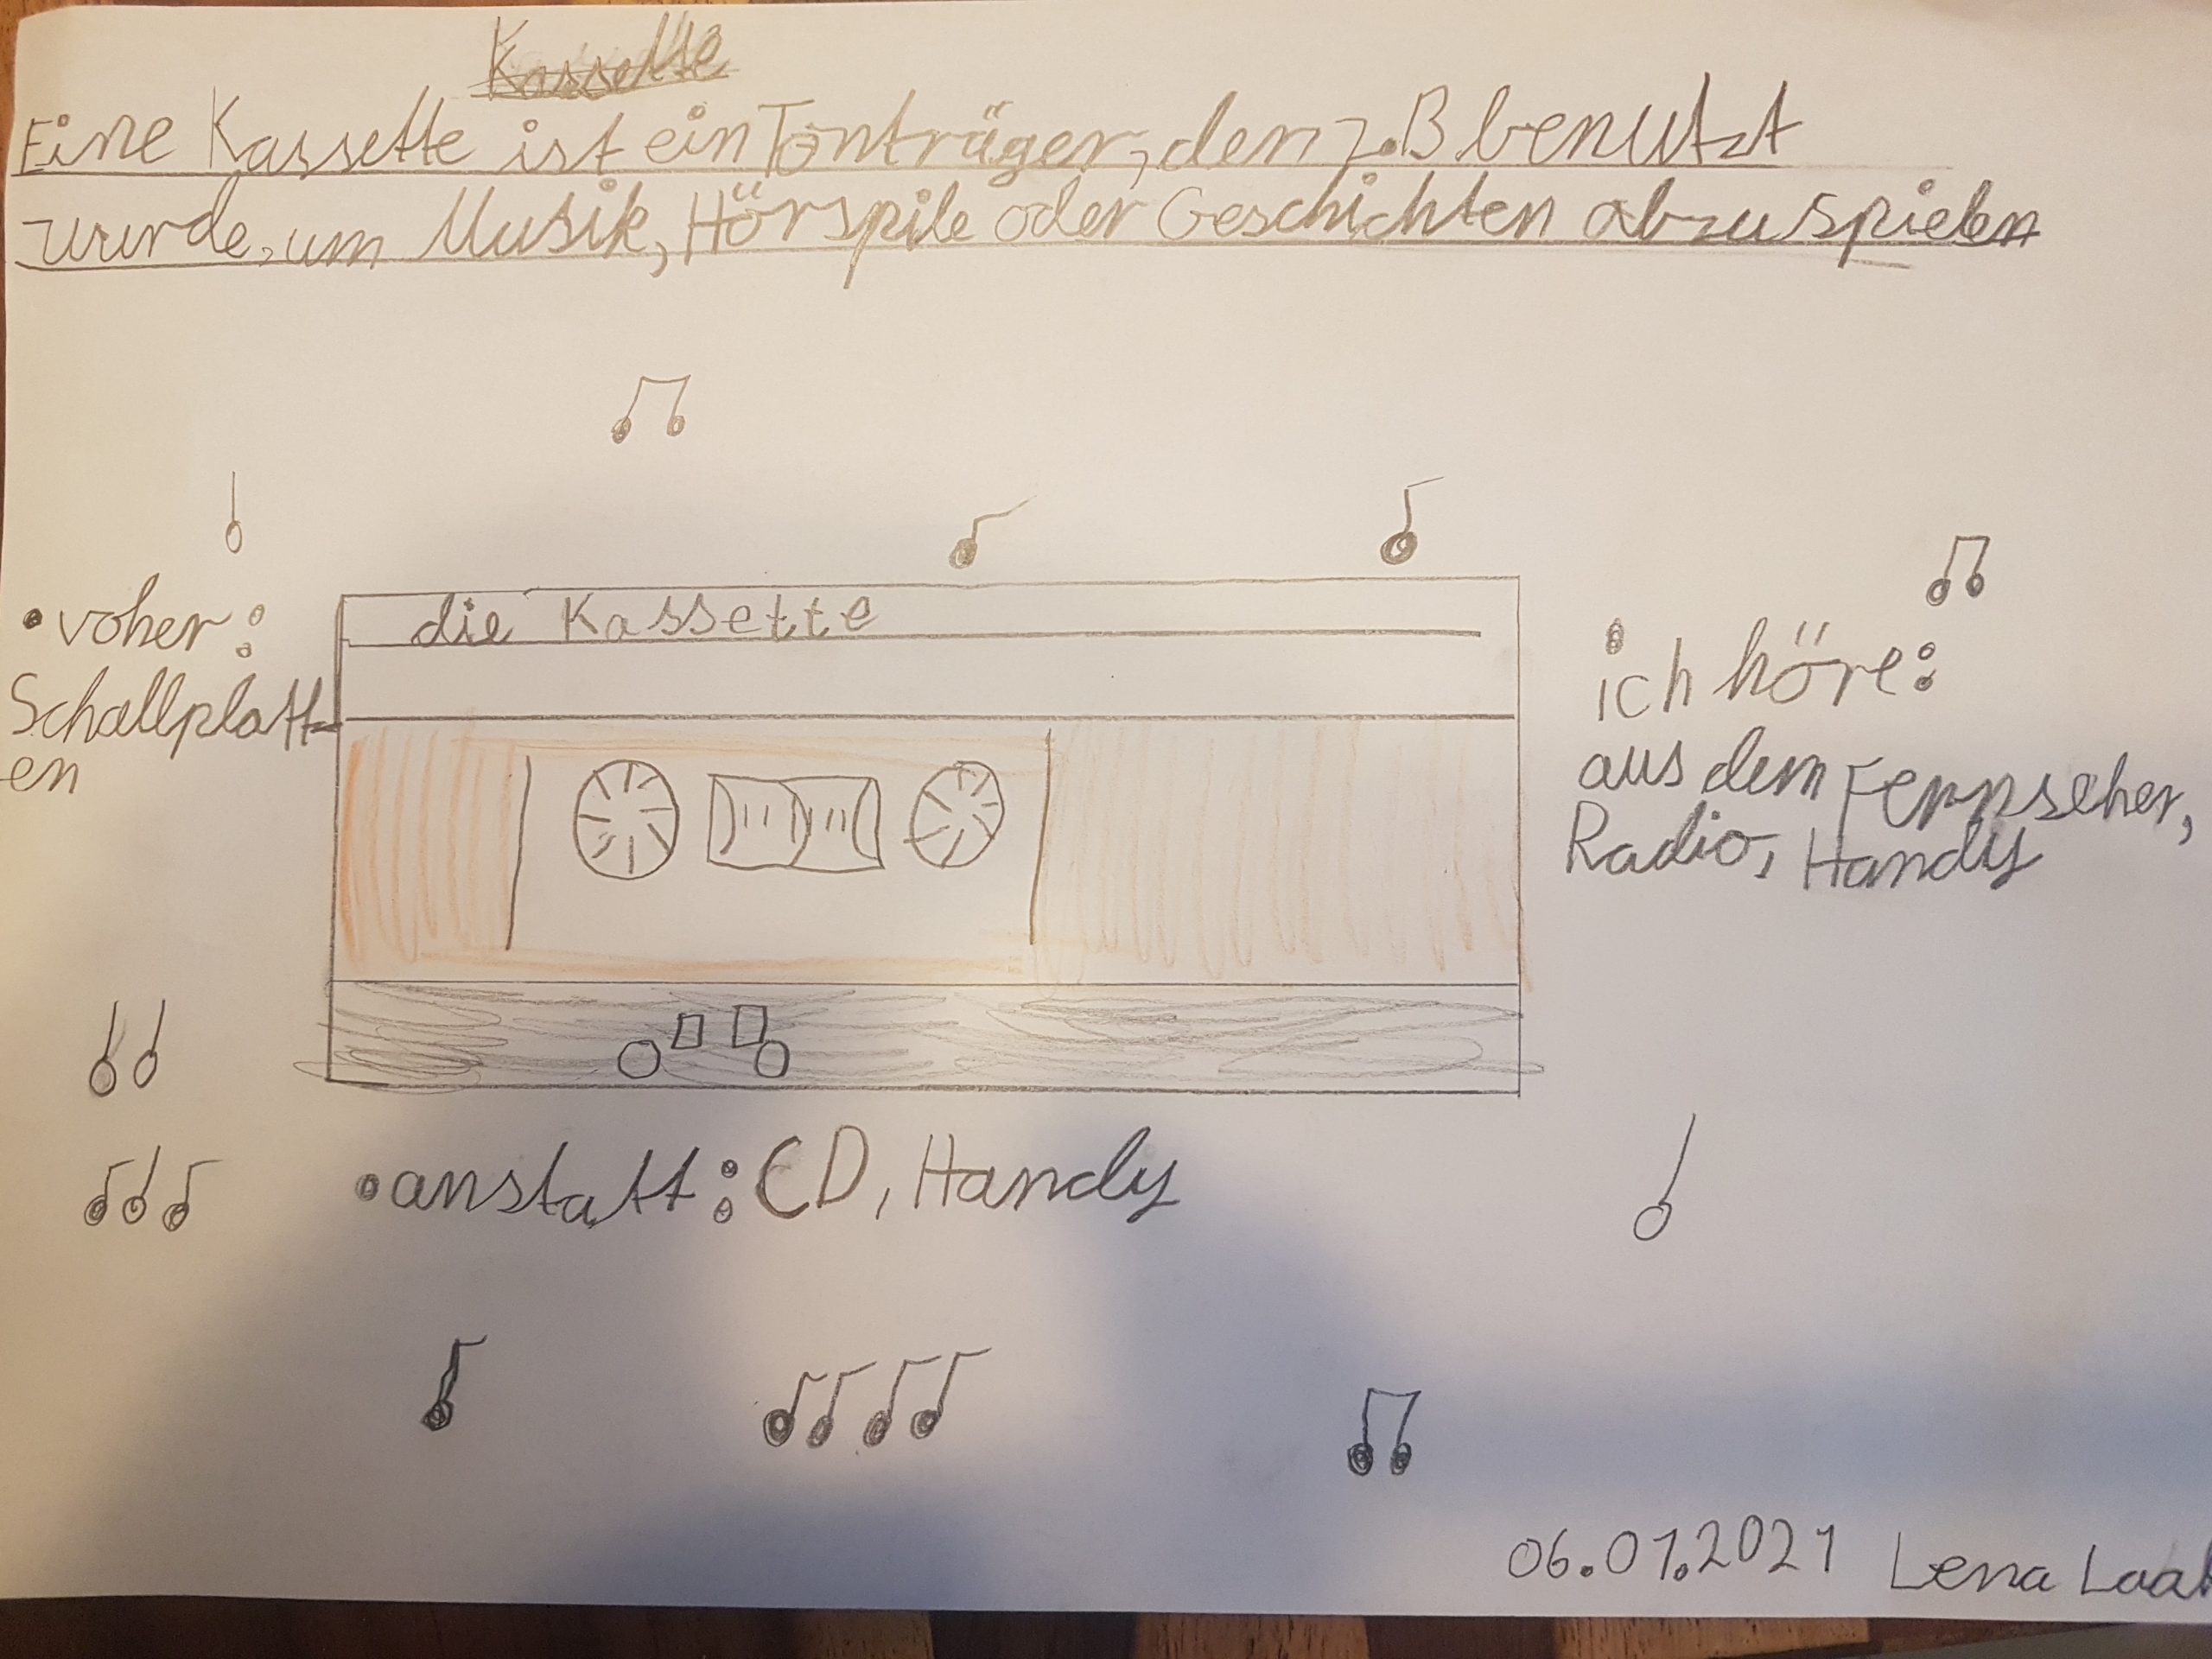 Kassette
Eine Kassette ist ein Tonträger, den z.B benutzt
wurde, um Musik, Hörspile oder Geschichten abzuspielen
die Kassette
• voher:
Schallplatt-
en
ich höre:
aus dem Fernseher,
Radio, Handy
• anstatt: CD, Handy
06.01.2021 Lena